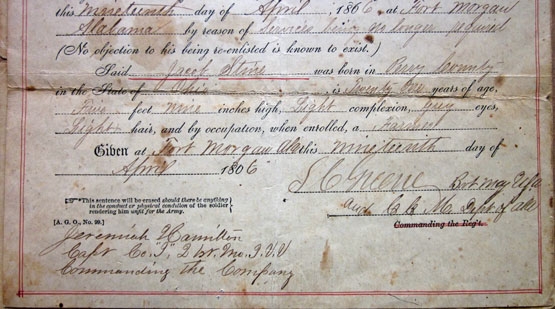 this Nineteenth day of April 1866 at Fort Morgan
Alabama by reason of Services being no longer required
(No objection to his being re-enlisted is known to exist.)
Said Jacob Stine was born in Perry County
in the State of Ohio is Twenty Six years of age,
Five feet nine inches high, Light complexion, Grey eyes,
Light hair, and by occupation, when enrolled, a Farmer
Given at Fort Morgan Ala this nineteenth day of
April 1866
☞This sentence will be erased should there be anything
in the conduct or physical condition of the soldier
rendering him unfit for the Army.
[A. G. O., No. 99.]
Bvt Maj
and C. M. Dept of Ala
Commanding the Reg't.
Jeremiah Hamilton
Capt Co. I, 21st Mo. I. V. V
Commanding the Company